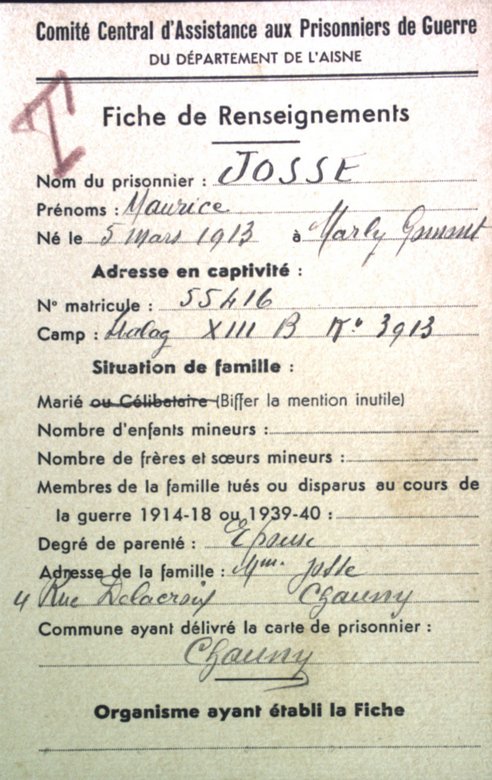 Comité Central d'Assistance aux Prisonniers de Guerre
DU DÉPARTEMENT DE L'AISNE
Fiche de Renseignements
Nom du prisonnier : JOSSE
Prénoms : Maurice
Né le 5 mars 1913 à Marly Gomont
Adresse en captivité :
N° matricule : 55416
Camp : Stalag XIII B N° 3913
Situation de famille :
Marié ou Célibataire (Biffer la mention inutile)
Nombre d'enfants mineurs :
Nombre de frères et sœurs mineurs :
Membres de la famille tués ou disparus au cours de
la guerre 1914-18 ou 1939-40 :
Degré de parenté : Epouse
Adresse de la famille : Mme Josse
4 Rue Delacroix Chauny
Commune ayant délivré la carte de prisonnier :
Chauny
Organisme ayant établi la Fiche